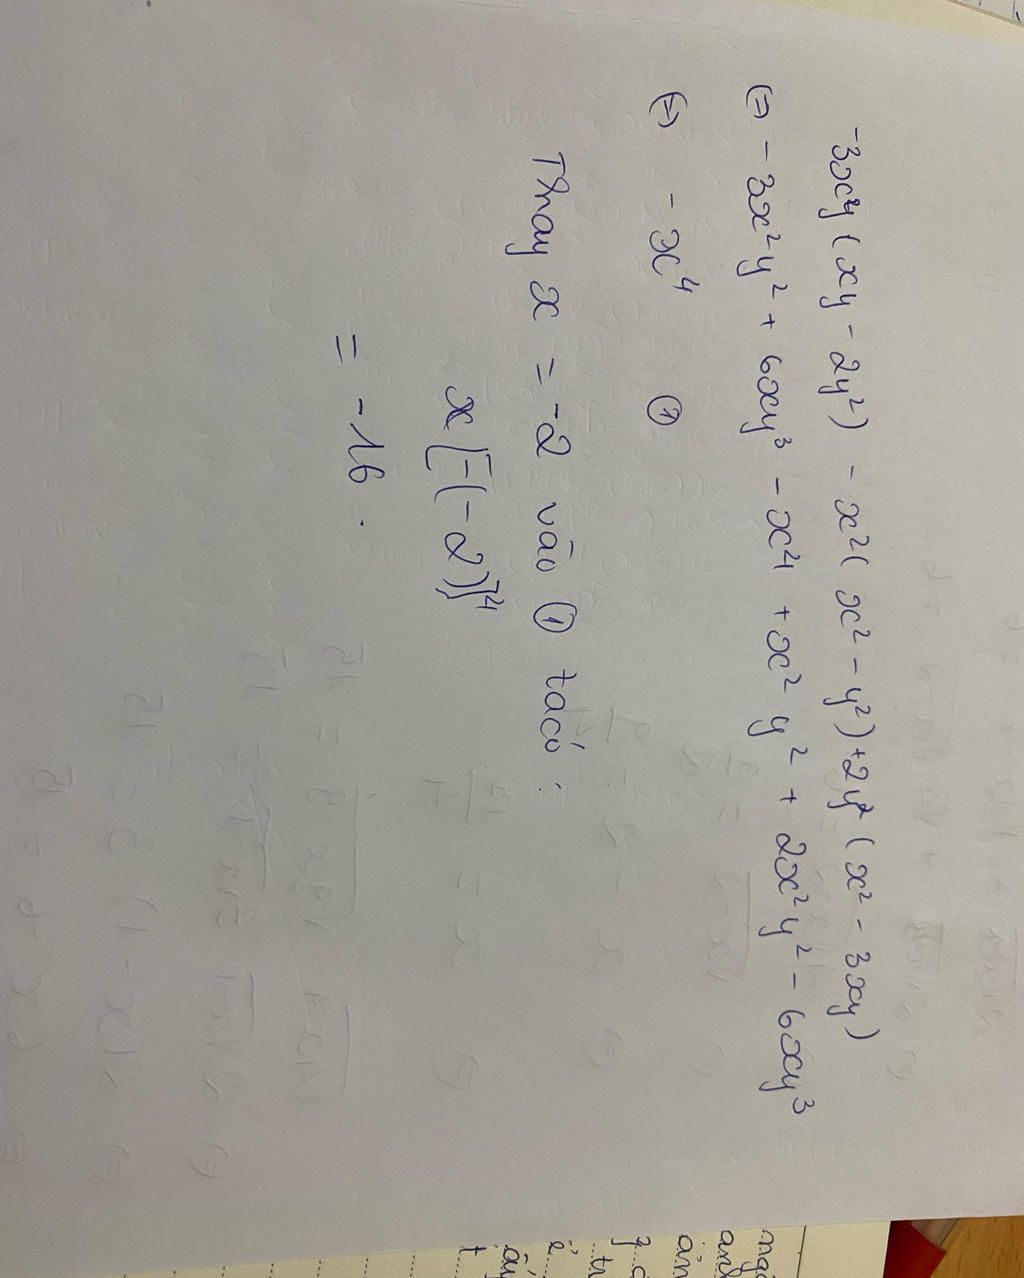 -3xy (xy - 2y²) - x² (x² - y²) + 2y² (x² - 3xy)
(=) - 3x²y² + 6xy³ - x⁴ + x²y² + 2x²y² - 6xy³
(=) - x⁴ ①
Thay x = -2 vào ① ta có :
x [-(-2)]⁴
= -16 .